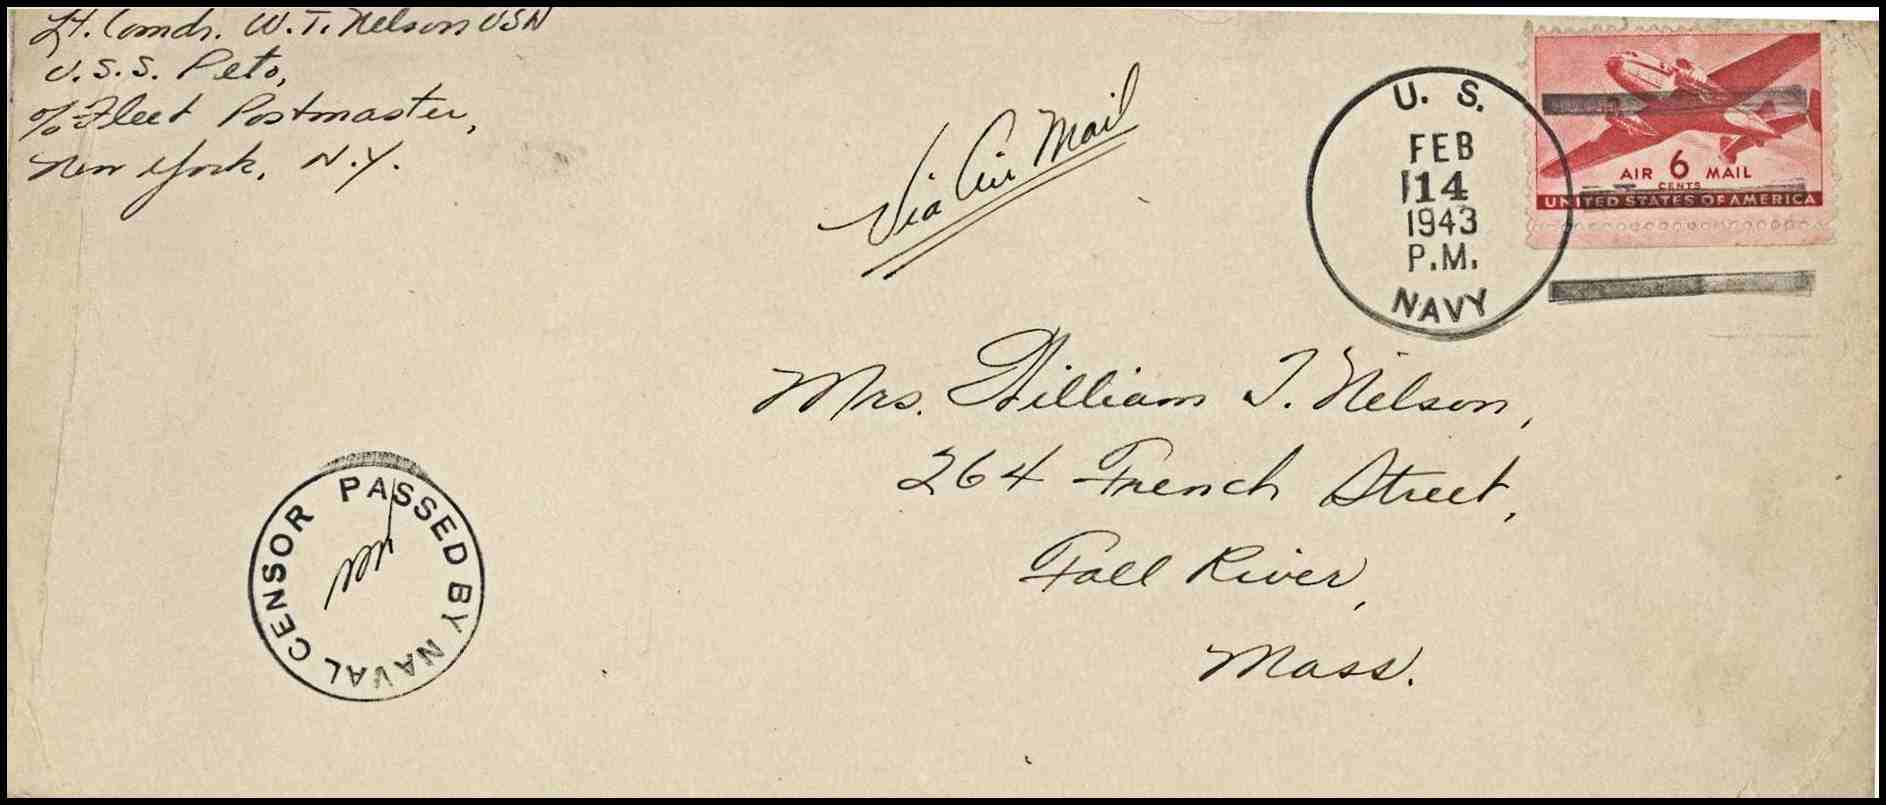 Lt. Comdr. W. T. Nelson USN
U.S.S. Peto,
c/o Fleet Postmaster,
New York, N.Y.
Via Air Mail
U. S.
FEB
14
1943
P.M.
NAVY
AIR 6 MAIL
CENTS
UNITED STATES OF AMERICA
Mrs. William T. Nelson,
264 French Street,
Fall River,
Mass.
PASSED BY NAVAL CENSOR